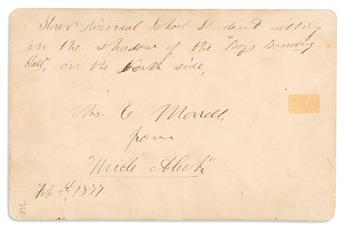 Three Normal School Students sitting
in the shadow of the "Boys Boarding
Hall", on the North side,
Mrs. C Morrell,
from
"Uncle Aleck"
Feb 1877